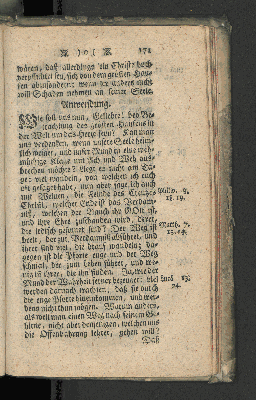 )o( 171
wären, daß allerdings ein Christ hoch
verpflichtet sey, sich von dem großen Hau-
fen abzusondern: wenn er anders nicht
will Schaden nehmen an seiner Seele.
Anwendung.
Wie soll uns nun, Geliebte! bey Be-
trachtung des großen Haufens in
der Welt um das Herze seyn? Kan man
uns verdenken, wenn unsere Seele heim-
lich weinet, und unser Mund in eine weh-
müthige Klage um Ach und Weh aus-
brechen möchte? Liegt es nicht am Ta-
ge: viel wandeln, von welchen ich euch
oft gesaget habe, nun aber sage ich auch
mit Weinen, die Feinde des Creutzes
Christi, welcher Ende ist das Verdam-
niß, welchen der Bauch ihr GOtt ist,
und ihre Ehre zuschanden wird, derer,
die irdisch gesinnet sind? Der Weg ist
breit, der zur Verdammniß abführet, und
ihrer sind viel, die drauf wandeln; da-
gegen ist die Pforte enge und der Weg
schmal, der zum Leben führet, und we-
nig ist ihrer, die ihn finden. Ja, wie der
Mund der Wahrheit ferner bezeuget: viel
werden darnach trachten, daß sie durch
die enge Pforte hineinkommen, und wer-
dens nicht thun mögen. Warum anders,
als weil man einen Weg nach seinem Ge-
hirne, nicht aber denjenigen, welchen uns
die Offenbahrung lehret, gehen will?
Daß
Philip. 3,
18. 19.
Matth. 7.
13. 14.
Luc. 13.
24.